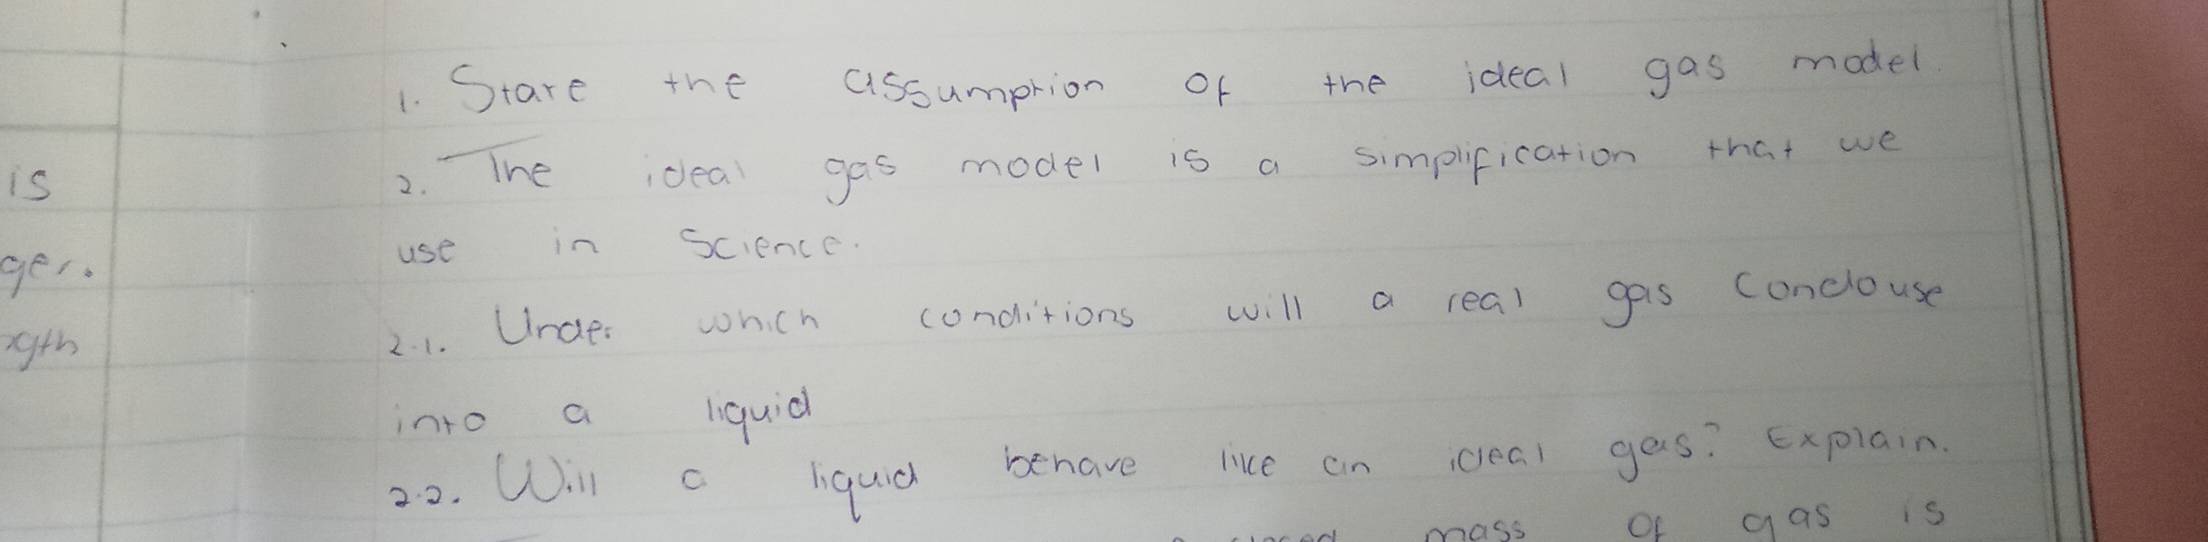 1. State the assumption of the ideal gas model.
is
2. The ideal gas model is a simplification that we
use in Science.
ger.
2.1. Under which conditions will a real gas condouse
ngth
into a liquid
2.2. Will a liquid behave like an ideal gas? Explain.
mass of gas is